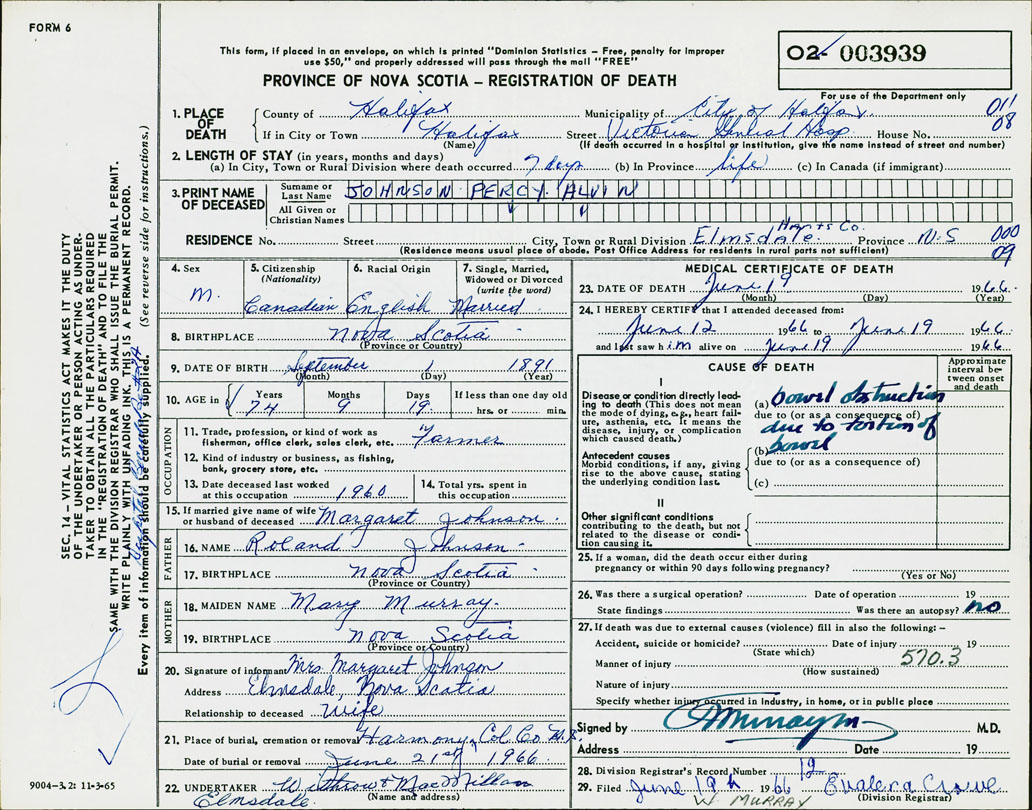 FORM 6
This form, if placed in an envelope, on which is printed "Dominion Statistics – Free, penalty for improper
use $50," and properly addressed will pass through the mail "FREE"
PROVINCE OF NOVA SCOTIA – REGISTRATION OF DEATH
02- 003939
For use of the Department only
011
08
1. PLACE OF DEATH
County of Halifax Municipality of City of Halifax
If in City or Town Halifax Street Victoria General Hosp. House No.
(Name) (If death occurred in a hospital or institution, give the name instead of street and number)
2. LENGTH OF STAY (in years, months and days)
(a) In City, Town or Rural Division where death occurred 7 days (b) In Province life (c) In Canada (if immigrant)
3. PRINT NAME OF DECEASED
Surname or Last Name JOHNSON PERCY ALVIN
All Given or Christian Names
RESIDENCE No. Street City, Town or Rural Division Elmsdale Hants Co. Province N.S 000
09
(Residence means usual place of abode. Post Office Address for residents in rural parts not sufficient)
4. Sex M.
5. Citizenship (Nationality) Canadian
6. Racial Origin English
7. Single, Married, Widowed or Divorced (write the word) Married
8. BIRTHPLACE Nova Scotia
(Province or Country)
9. DATE OF BIRTH September 1 1891
(Month) (Day) (Year)
10. AGE in Years 74 Months 9 Days 19 If less than one day old hrs. or min.
OCCUPATION
11. Trade, profession, or kind of work as fisherman, office clerk, sales clerk, etc. Farmer
12. Kind of industry or business, as fishing, bank, grocery store, etc.
13. Date deceased last worked at this occupation 1960
14. Total yrs. spent in this occupation
15. If married give name of wife or husband of deceased Margaret Johnson
FATHER
16. NAME Roland Johnson
17. BIRTHPLACE Nova Scotia
(Province or Country)
MOTHER
18. MAIDEN NAME Mary Murray
19. BIRTHPLACE Nova Scotia
(Province or Country)
20. Signature of informant Mrs. Margaret Johnson
Address Elmsdale, Nova Scotia
Relationship to deceased Wife
21. Place of burial, cremation or removal Harmony, Col. Co. N.S.
Date of burial or removal June 21st, 1966
22. UNDERTAKER Withrow & MacMillan
(Name and address)
Elmsdale
MEDICAL CERTIFICATE OF DEATH
23. DATE OF DEATH June 19 1966.
(Month) (Day) (Year)
24. I HEREBY CERTIFY that I attended deceased from:
June 12 1966 to June 19 1966
and last saw him alive on June 19 1966
CAUSE OF DEATH
Approximate interval between onset and death
I
Disease or condition directly leading to death (This does not mean the mode of dying, e.g., heart failure, asthenia, etc. It means the disease, injury, or complication which caused death.)
(a) bowel obstruction
due to (or as a consequence of)
due to torsion of
(b) bowel
due to (or as a consequence of)
(c)
Antecedent causes
Morbid conditions, if any, giving rise to the above cause, stating the underlying condition last.
II
Other significant conditions
contributing to the death, but not related to the disease or condition causing it.
25. If a woman, did the death occur either during pregnancy or within 90 days following pregnancy?
(Yes or No)
26. Was there a surgical operation? Date of operation 19
State findings Was there an autopsy? no
27. If death was due to external causes (violence) fill in also the following:–
Accident, suicide or homicide? Date of injury 19
(State which)
570.3
Manner of injury
(How sustained)
Nature of injury
Specify whether injury occurred in Industry, in home, or in public place
Signed by M.D.
Address Date 19
28. Division Registrar's Record Number 12
29. Filed June 19th 1966
(Division Registrar)
W. MURRAY
SEC. 14 – VITAL STATISTICS ACT MAKES IT THE DUTY
OF THE UNDERTAKER OR PERSON ACTING AS UNDER-
TAKER TO OBTAIN ALL THE PARTICULARS REQUIRED
IN THE "REGISTRATION OF DEATH" AND TO FILE THE
SAME WITH THE DIVISION REGISTRAR WHO SHALL ISSUE THE BURIAL PERMIT.
WRITE PLAINLY WITH UNFADING INK. THIS IS A PERMANENT RECORD.
Every item of information should be carefully supplied. (See reverse side for instructions.)
9004-3.2: 11-3-65